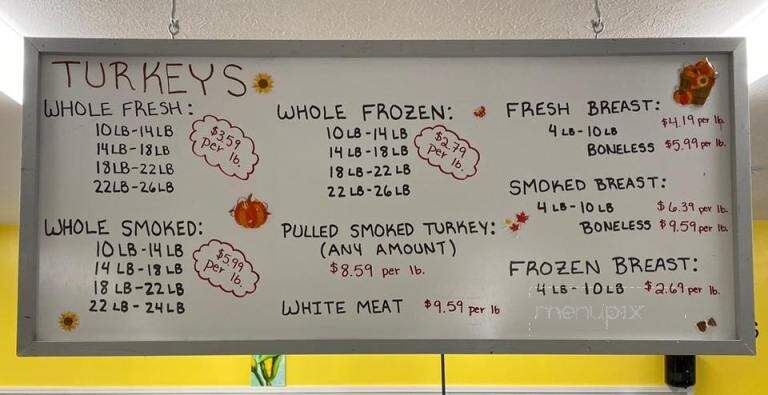 TURKEYS
WHOLE FRESH:
10LB-14LB
14LB-18LB
18LB-22LB
22LB-26LB
$3.59
per lb.
WHOLE SMOKED:
10 LB-14 LB
14 LB-18 LB
18 LB-22 LB
22 LB-24LB
$5.99
per lb.
WHOLE FROZEN:
10 LB-14 LB
14 LB-18 LB
18 LB-22 LB
22 LB-26LB
$2.79
per lb.
PULLED SMOKED TURKEY:
(ANY AMOUNT)
$8.59 per lb.
WHITE MEAT $9.59 per lb
FRESH BREAST:
4 LB-10LB $4.19 per lb.
BONELESS $5.99 per lb.
SMOKED BREAST:
4 LB-10LB $6.39 per lb.
BONELESS $9.59 per lb.
FROZEN BREAST:
4 LB-10LB $2.69 per lb.
menupix